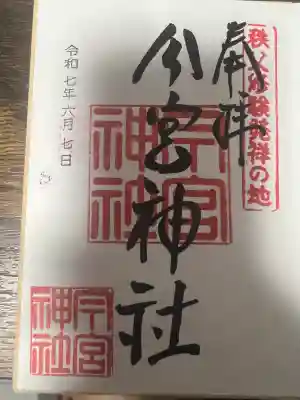 秩父修験発祥の地
奉拝
今宮神社
令和七年六月七日
今宮
神社
今宮
神社